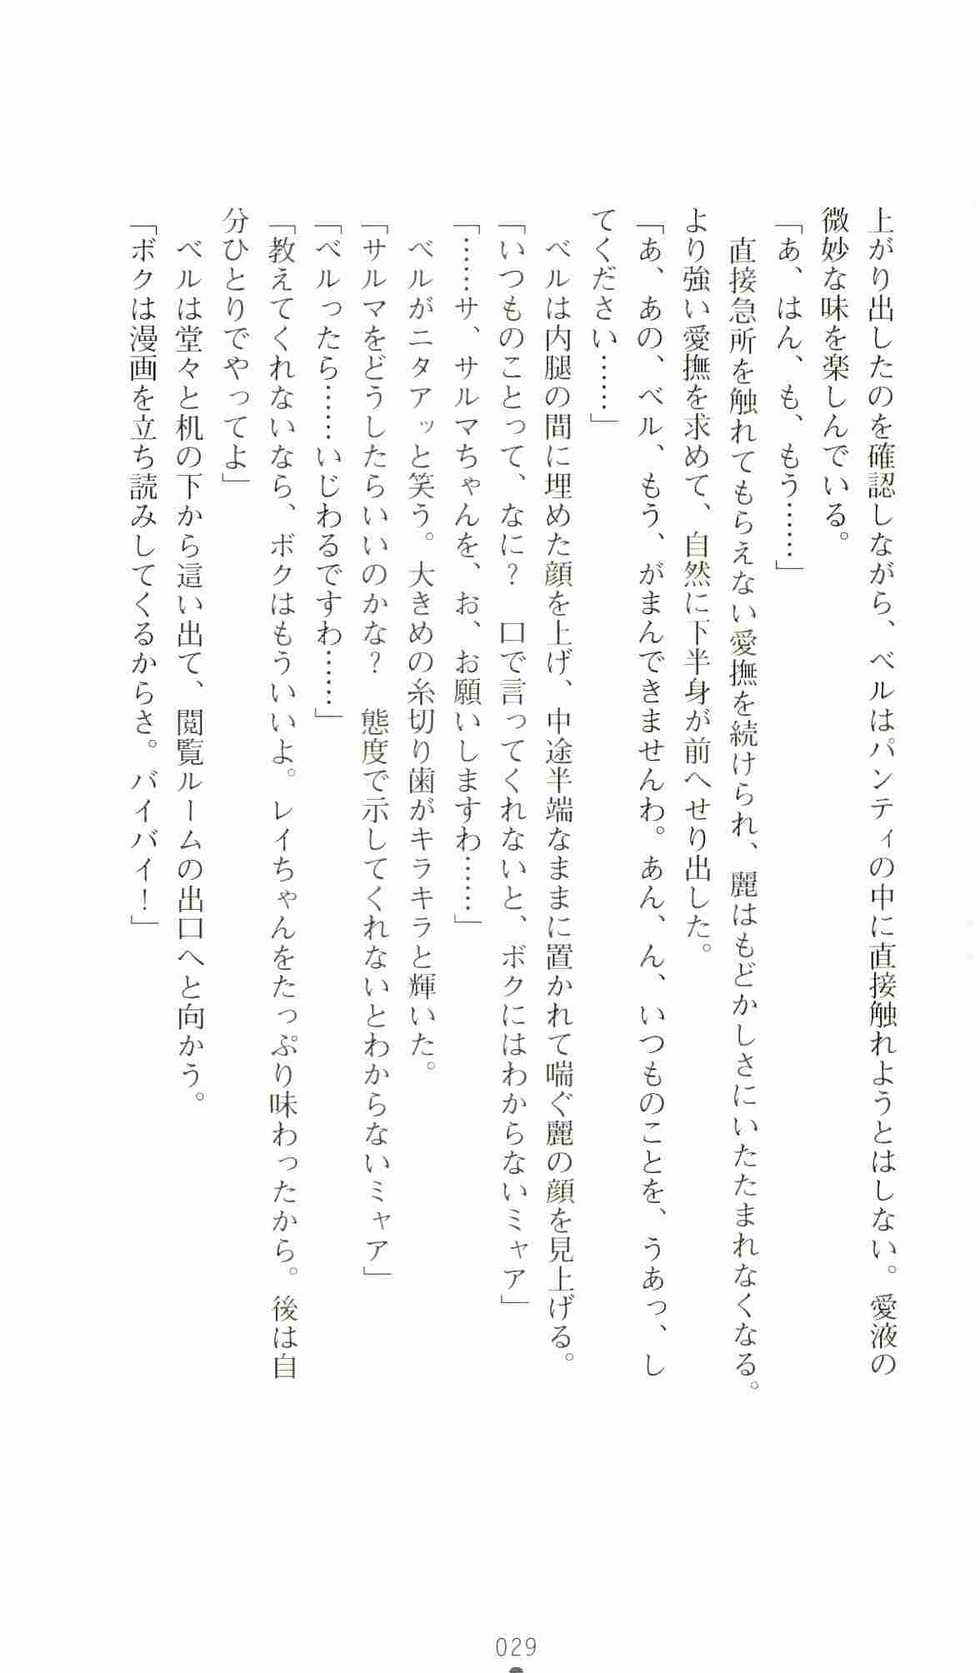 上がり出したのを確認しながら、ベルはパンティの中に直接触れようとはしない。愛液の
微妙な味を楽しんでいる。
「あ、はん、も、もう……」
　直接急所を触れてもらえない愛撫を続けられ、麗はもどかしさにいたたまれなくなる。
より強い愛撫を求めて、自然に下半身が前へせり出した。
「あ、あの、ベル、もう、がまんできませんわ。あん、ん、いつものことを、うあっ、し
てください……」
　ベルは内腿の間に埋めた顔を上げ、中途半端なままに置かれて喘ぐ麗の顔を見上げる。
「いつものことって、なに？　口で言ってくれないと、ボクにはわからないミャア」
「……サ、サルマちゃんを、お、お願いしますわ……」
　ベルがニタアッと笑う。大きめの糸切り歯がキラキラと輝いた。
「サルマをどうしたらいいのかな？　態度で示してくれないとわからないミャア」
「ベルったら……いじわるですわ……」
「教えてくれないなら、ボクはもういいよ。レイちゃんをたっぷり味わったから。後は自
分ひとりでやってよ」
　ベルは堂々と机の下から這い出て、閲覧ルームの出口へと向かう。
「ボクは漫画を立ち読みしてくるからさ。バイバイ！」
029